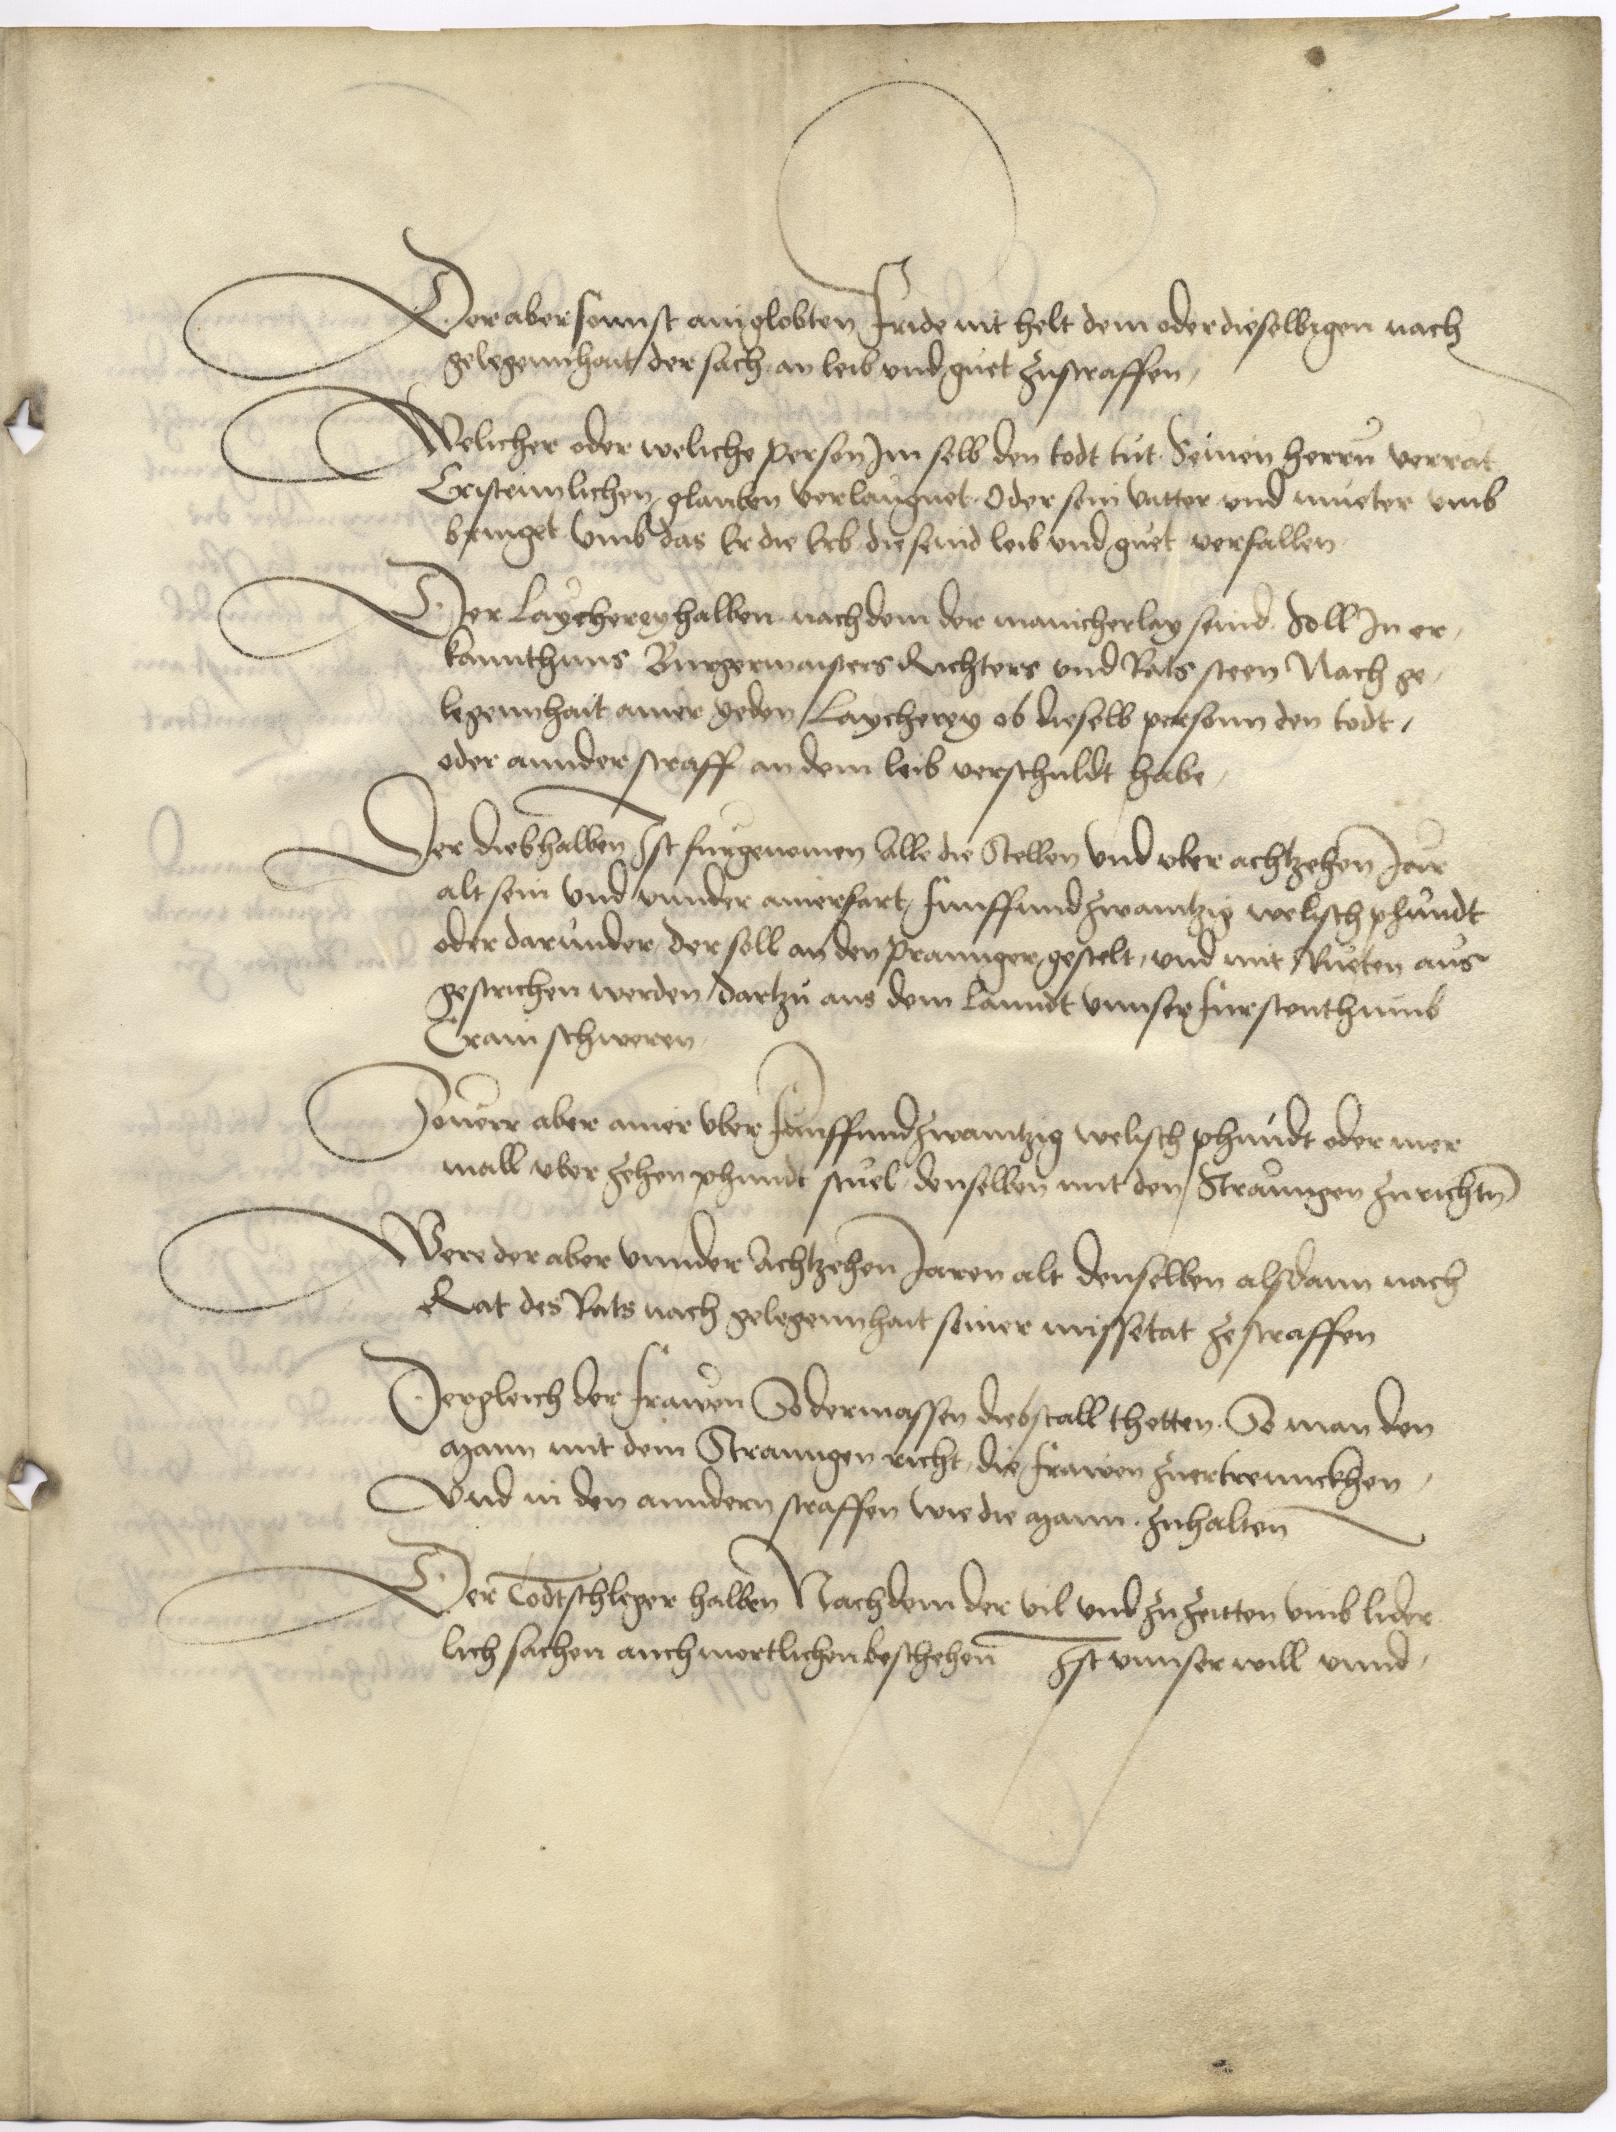 Der aber sonnst ain globten Fride nit helt dem oder dieselbigen nach
gelegennhait der sach an leib vnd guet zustraffen,
Welicher oder weliche person Im selb den todt tut. Seinen herrn verrat
Cristennlichen glauben verlaugnet. Oder sein vatter vnd mueter vmb
bringet vmb das Er die Erb die seind leib vnd guet verfallen
Der Laycherey halben nachdem der manicherlay seind. Soll In er,
kannthnus Burgermaisters Richters vnd Rats steen Nach ge,
legennhait ainer yeden Laycherey ob dieselb personn den todt,
oder annder straff an dem leib verschuldt habe,
Der dieb halben Ist furgenomen Alle die Stellen vnd vber achtzehen Jar
alt sein vnd vnnder ainer fart, funffundzwaintzig welisch phundt
oder darunder, der soll an den pranger, gestelt, vnd mit Rueten aus
gestrichen werden, dartzu aus dem Lanndt vnnser, furstenthumb
Crain schweren,
Souerr aber ainer vber funffundzwaintzig welisch phundt oder mer
mall vber zehen phundt stuel, denselben mit den Stranngen zurichtn
Were der aber vnnder Achtzehen Jaren alt denselben alsdann nach
Rat des Rats nach gelegennhait seiner missetat zestraffen
Dergleich der frawen So dermassen diebstall thetten. So man den
Mann mit dem Stranngen richt, die frawen zuertrennckhen,
Vnd in den anndern straffen wie die Mann. zuhalten
Der Todtschleger halben Nachdem der vil vnd zu Zeitten vmb lider
lich sachen auch mortlichen beschehen Ist vnnser will vnnd,